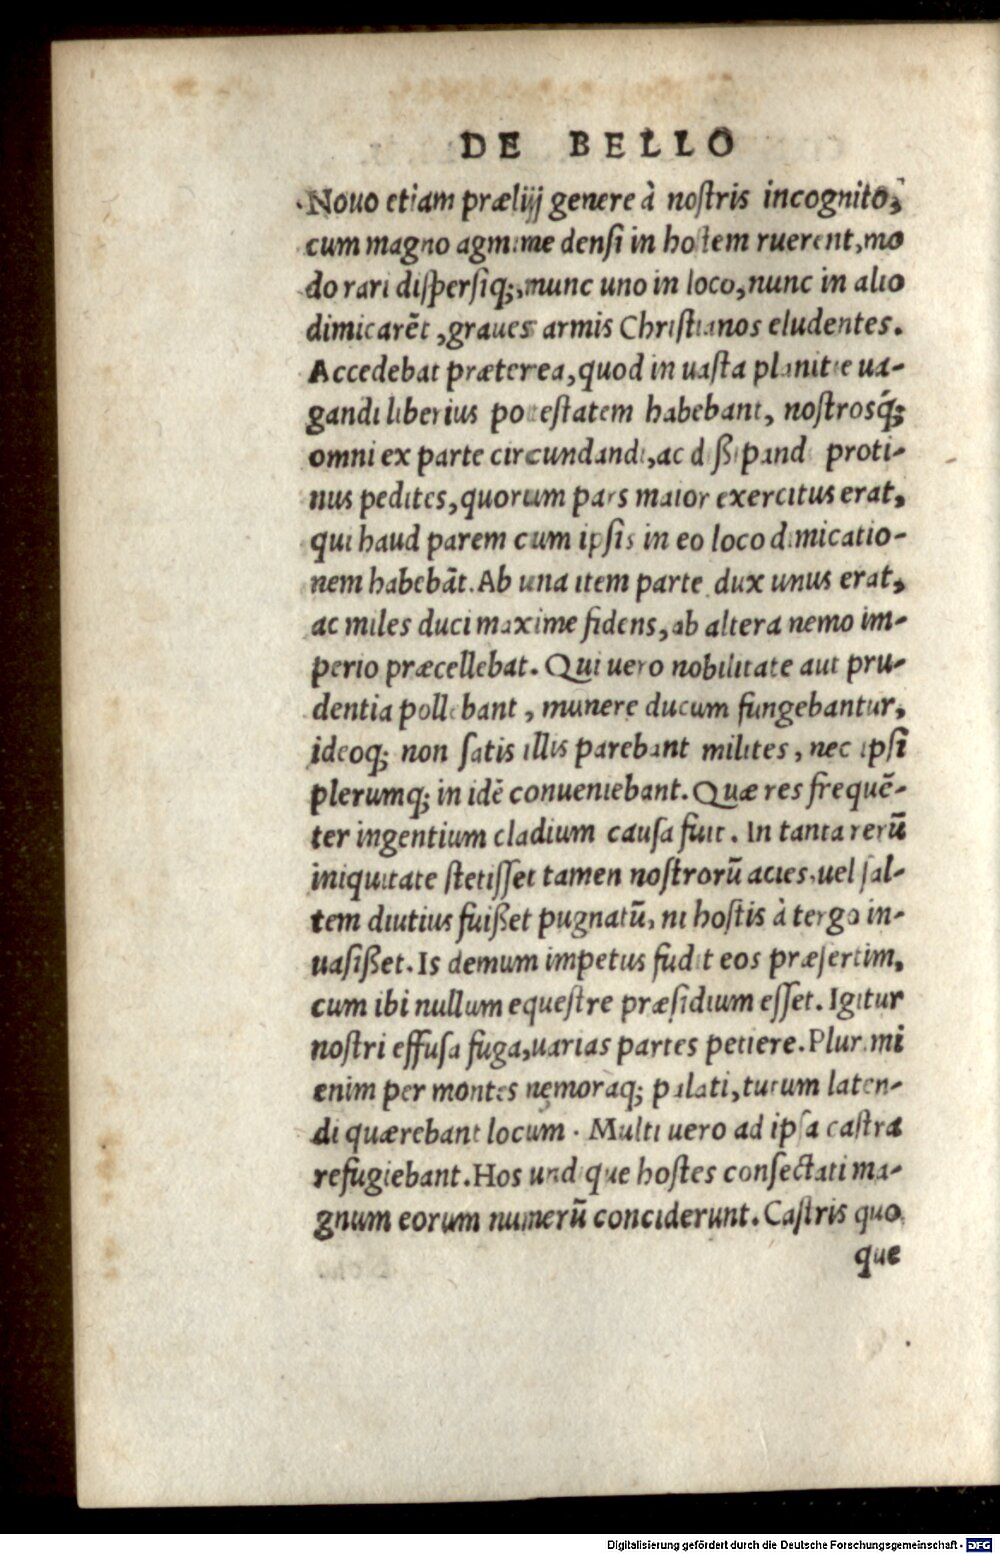 DE BELLO
Nouo etiam præliij genere à nostris incognito,
cum magno agmine densi in hostem ruerent, mo
do rari dispersiq;, nunc uno in loco, nunc in alio
dimicarēt, graues armis Christianos eludentes.
Accedebat præterea, quod in uasta planitie ua-
gandi liberius potestatem habebant, nostrosq́;
omni ex parte circundandi, ac dißipandi proti-
nus pedites, quorum pars maior exercitus erat,
qui haud parem cum ipsis in eo loco dimicatio-
nem habebāt. Ab una item parte dux unus erat,
ac miles duci maxime fidens, ab altera nemo im-
perio præcellebat. Qui uero nobilitate aut pru-
dentia pollebant, munere ducum fungebantur,
ideoq; non satis illis parebant milites, nec ipsi
plerumq; in idē conueniebant. Quæ res frequē-
ter ingentium cladium causa fuit. In tanta rerū
iniquitate stetisset tamen nostrorū acies, uel sal-
tem diutius fuißet pugnatū, ni hostis à tergo in-
uasißet. Is demum impetus fudit eos præsertim,
cum ibi nullum equestre præsidium esset. Igitur
nostri effusa fuga, uarias partes petiere. Plurimi
enim per montes nemoraq; palati, tutum laten-
di quærebant locum. Multi uero ad ipsa castra
refugiebant. Hos undique hostes consectati ma-
gnum eorum numerū conciderunt. Castris quo
que
Digitalisierung gefördert durch die Deutsche Forschungsgemeinschaft - DFG